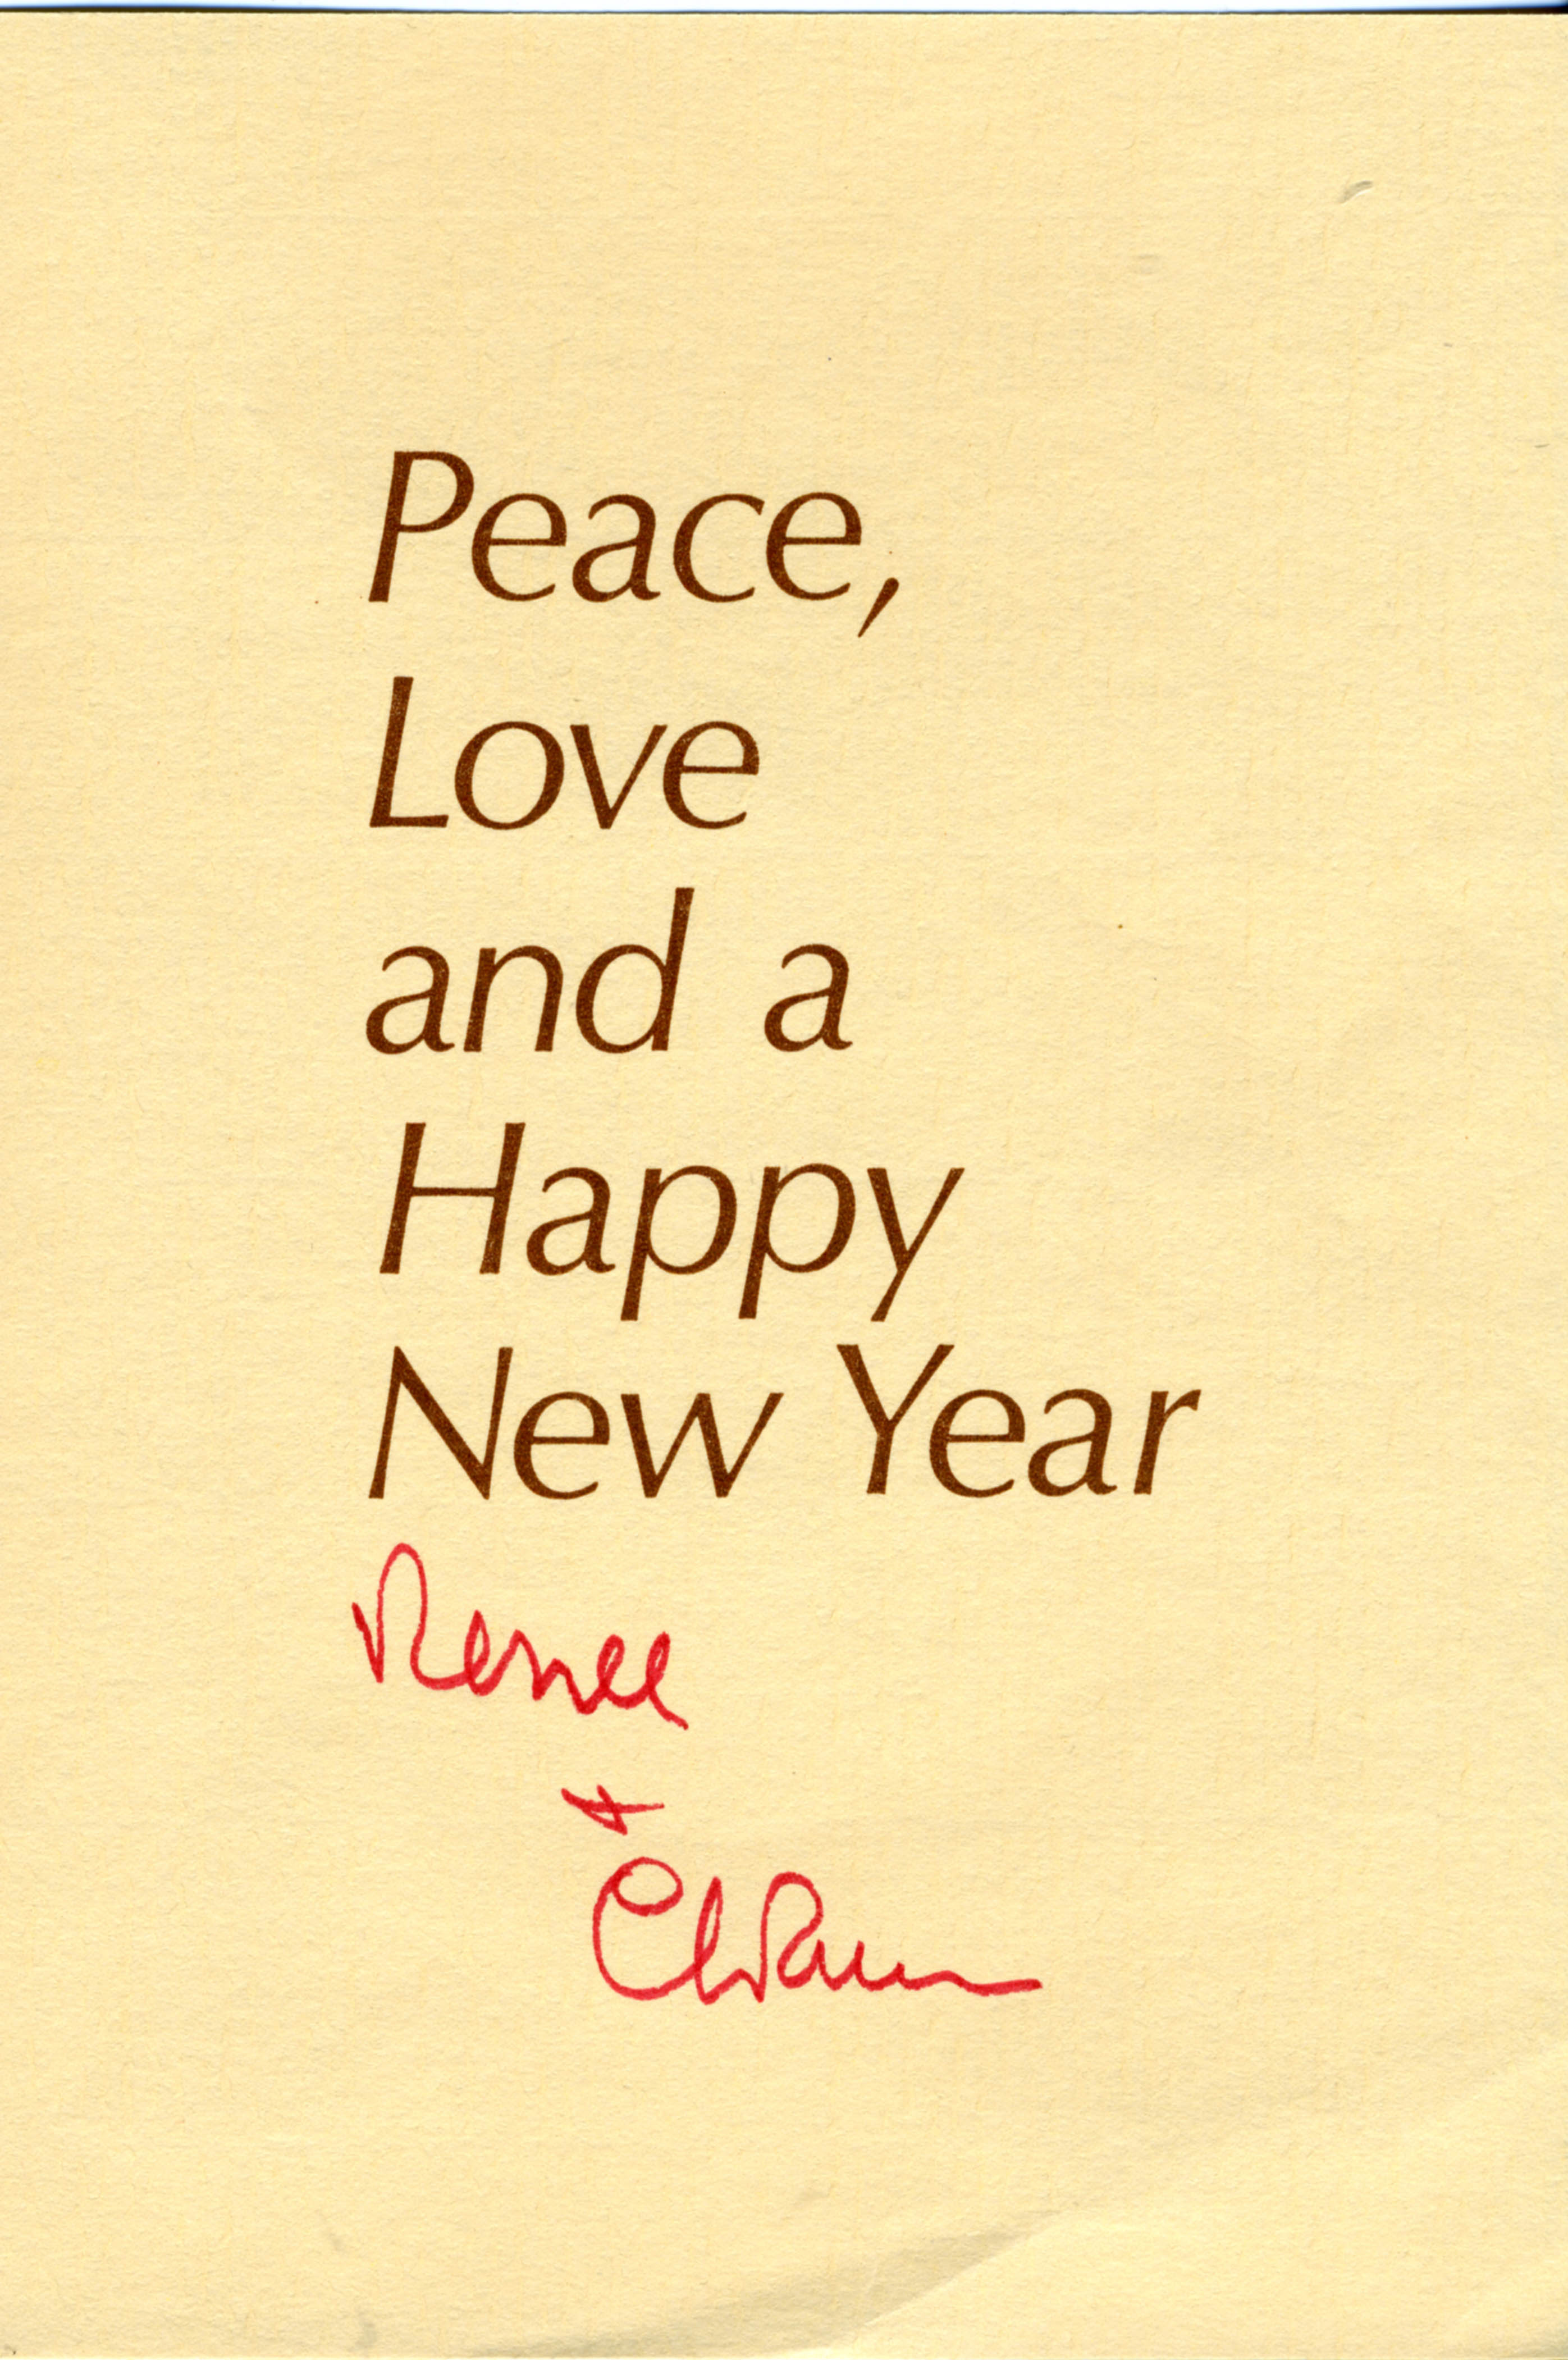 Peace,
Love
and a
Happy
New Year
Renee
+